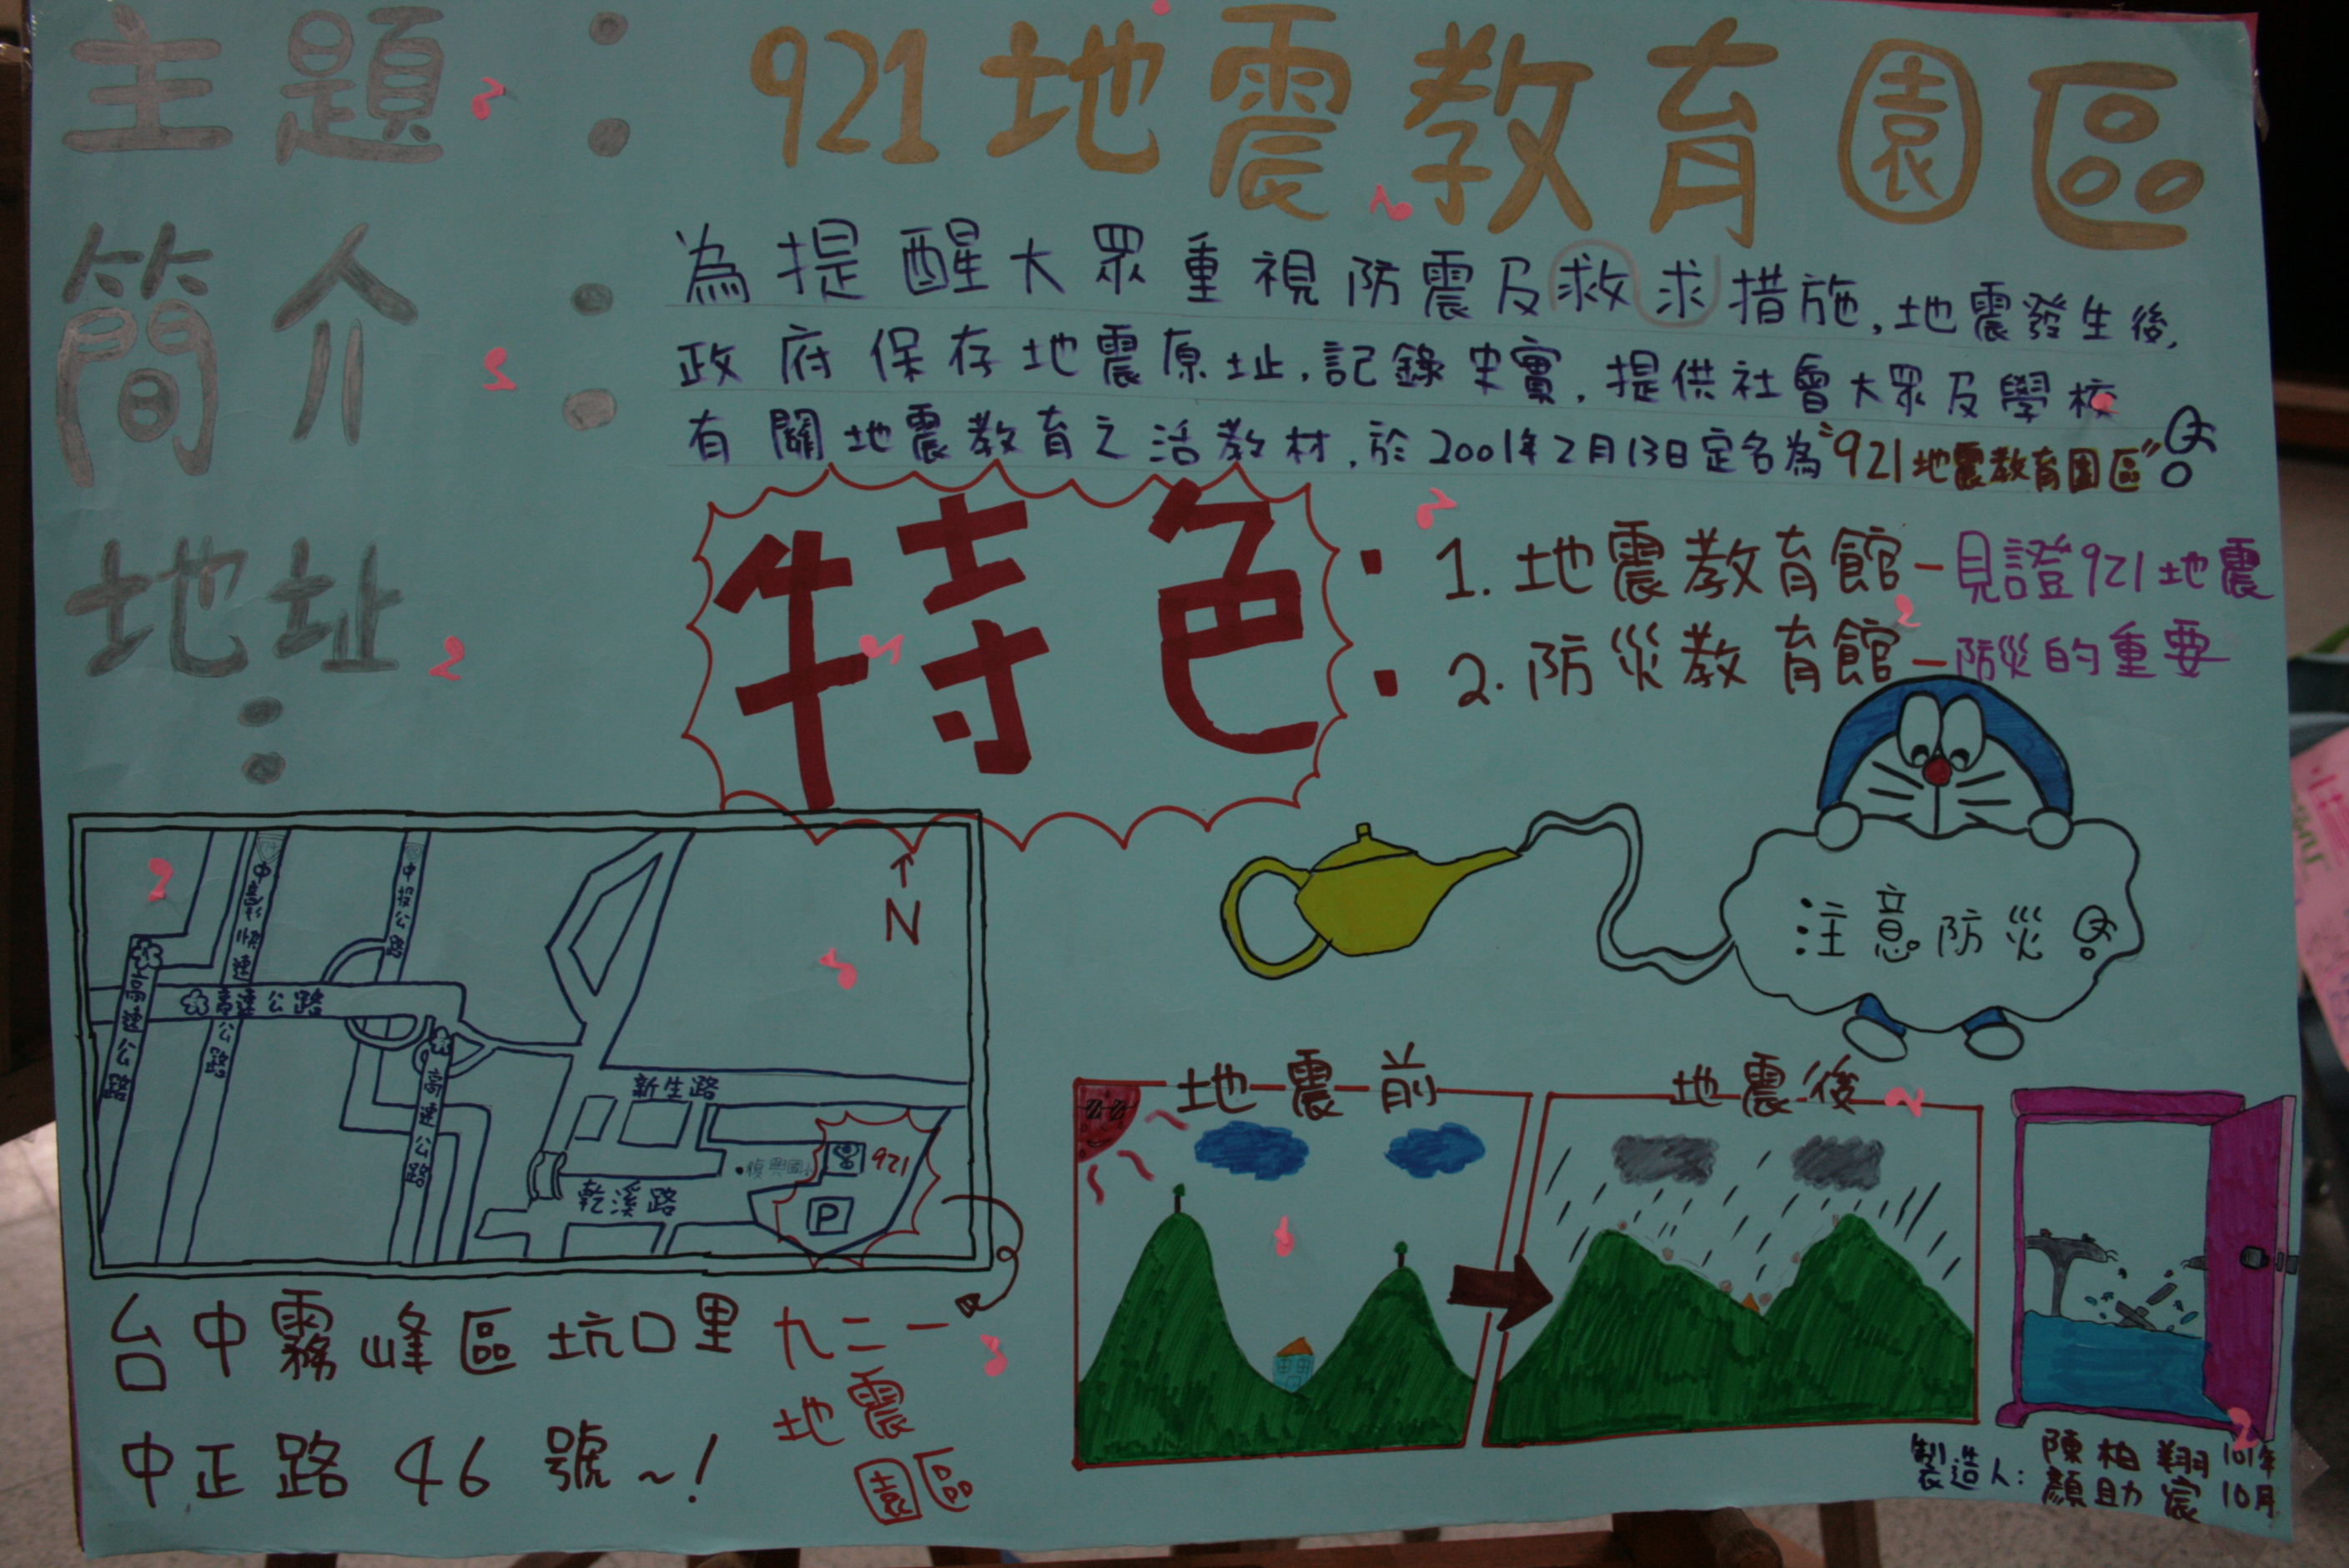 主題：921地震教育園區
簡介：
為提醒大眾重視防震及救求措施,地震發生後,
政府保存地震原址,記錄史實,提供社會大眾及學校
有關地震教育之活教材,於2001年2月13日定名為"921地震教育園區"!
特色：
1.地震教育館-見證921地震
2.防災教育館-防災的重要
地址：
N
中彰快速公路
中投公路
高速公路
高速公路
高速公路
新生路
復興國小
921
乾溪路
P
台中霧峰區坑口里
中正路46號~!
九二一
地震
園區
注意防災!
地震前
地震後
製造人：陳柏翔 101年
顏助宸 10月